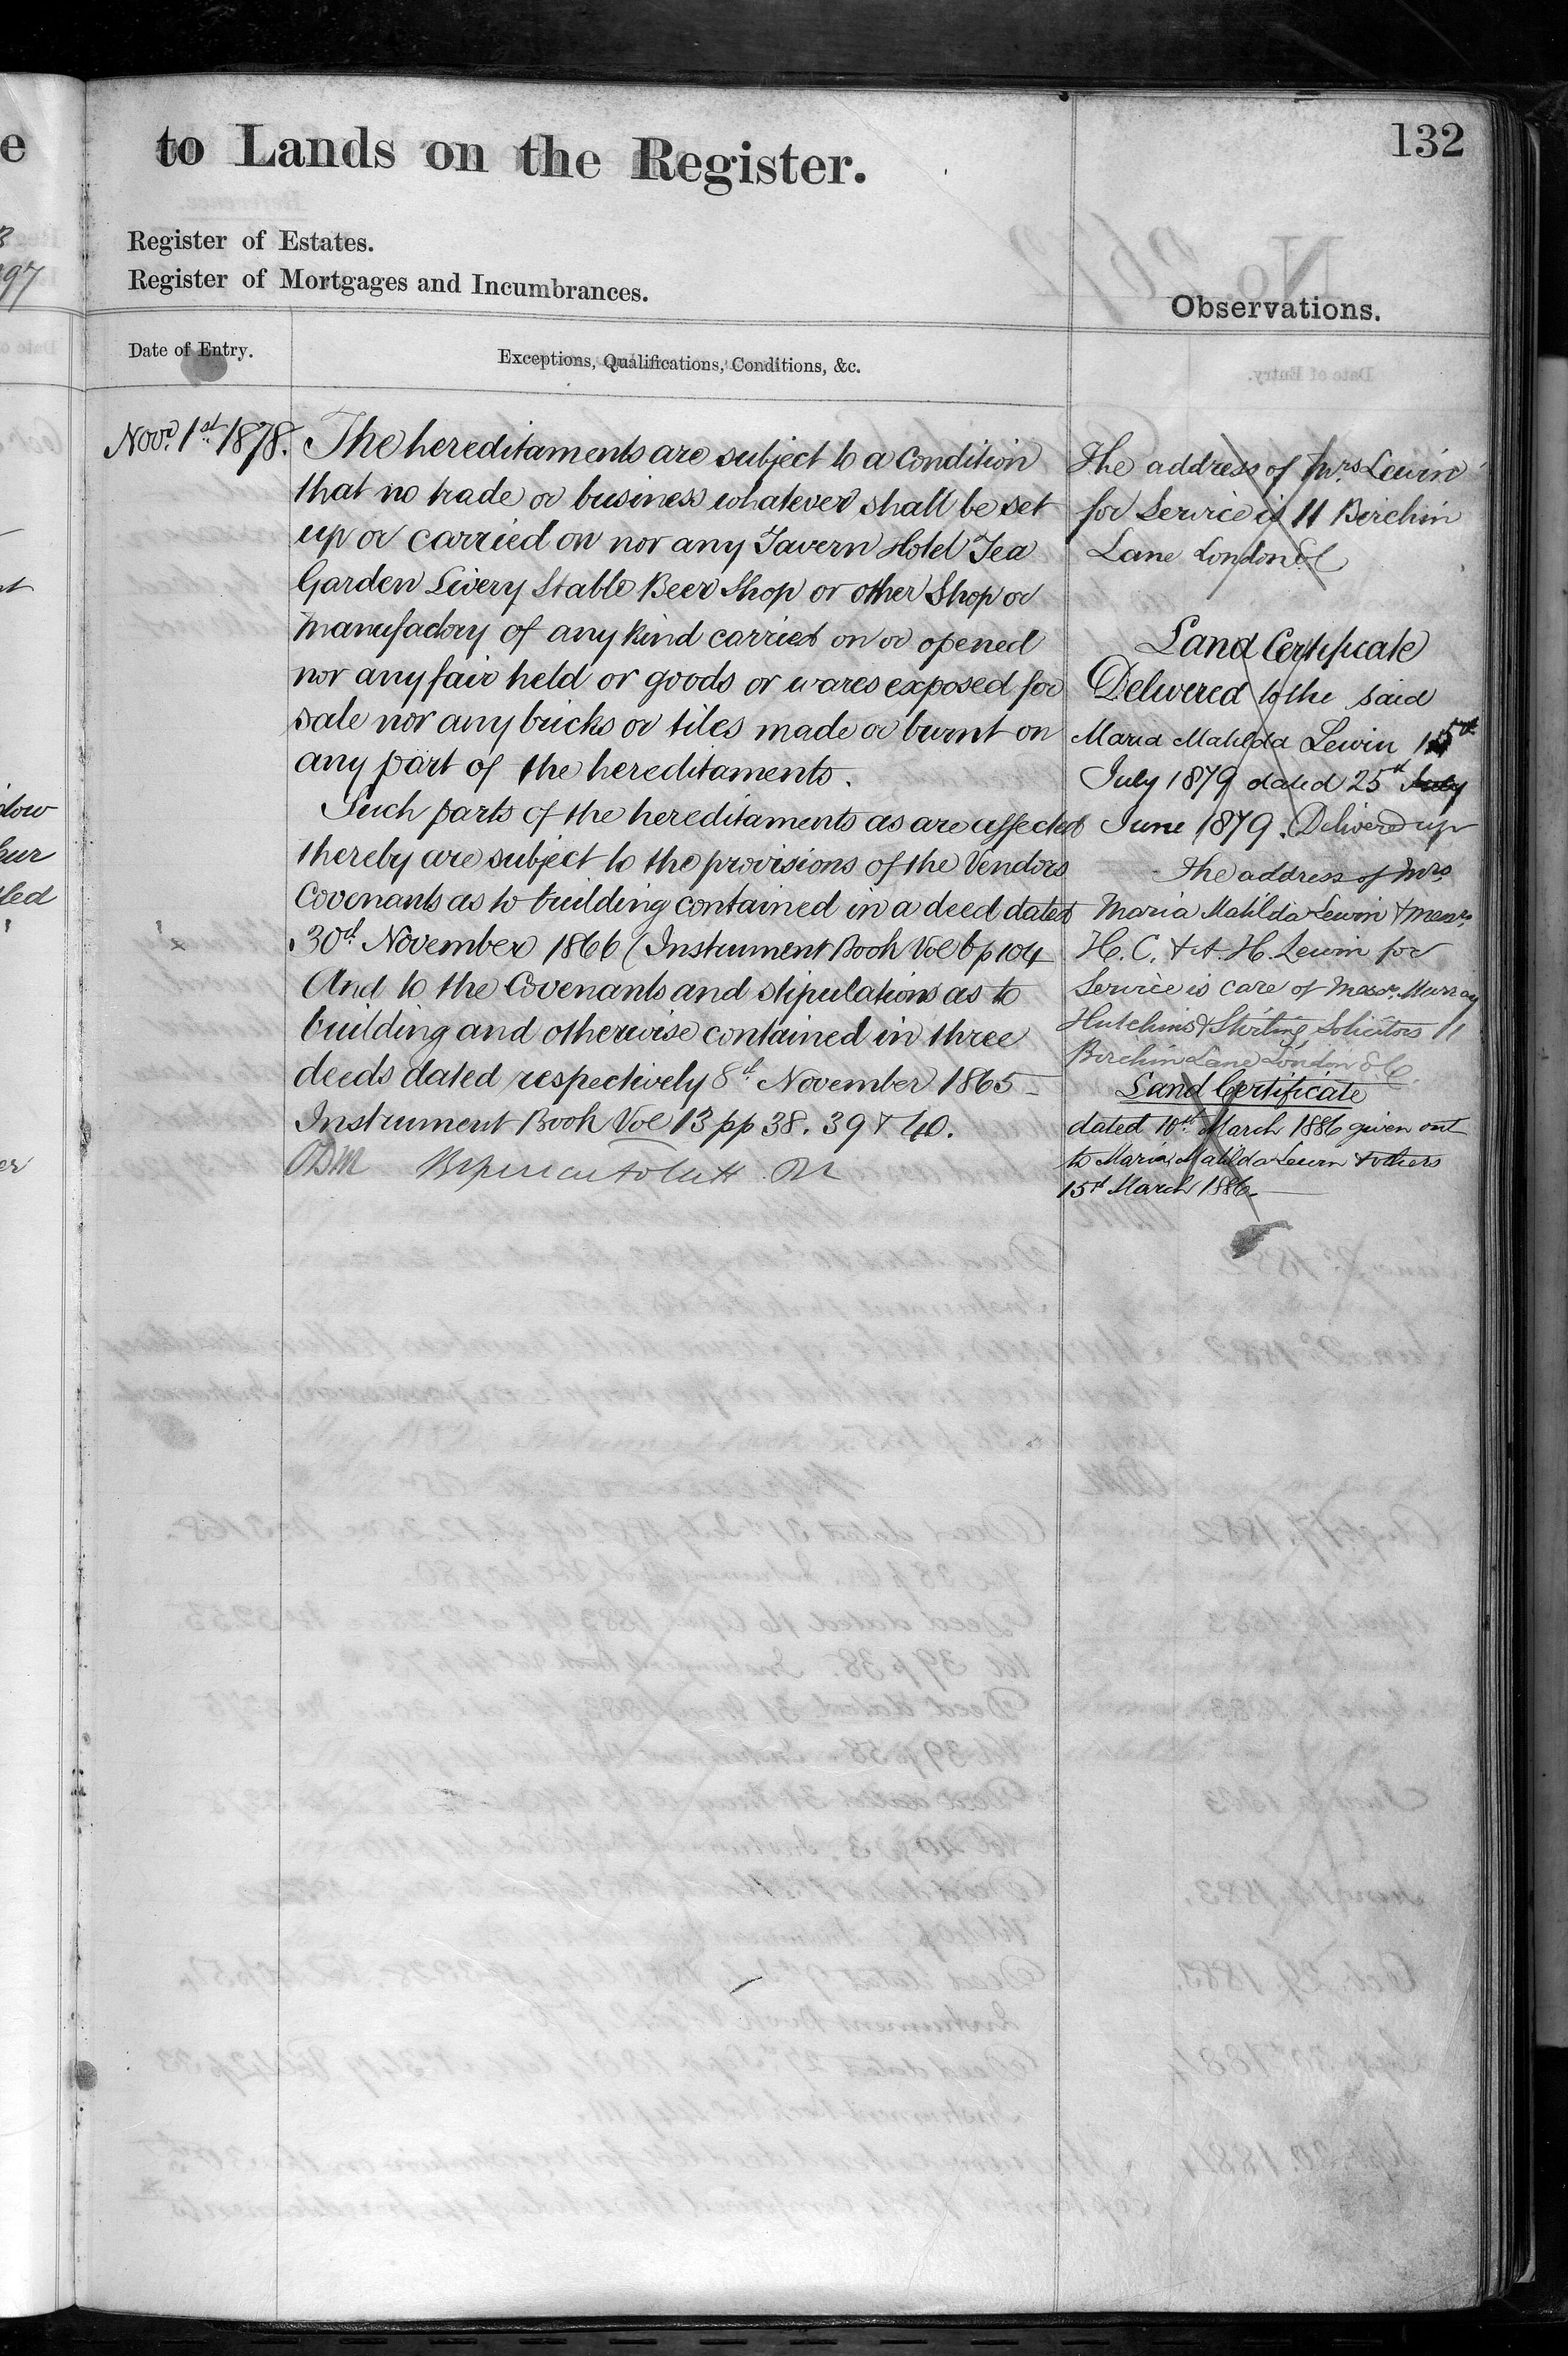 to Lands on the Register.
132
Register of Estates.
Register of Mortgages and Incumbrances.
Observations.
Date of Entry.
Exceptions, Qualifications, Conditions, &c.
Novr. 1st 1878.
The hereditaments are subject to a condition
that no trade or business whatever shall be set
up or carried on nor any Tavern Hotel Tea
Garden Livery Stable Beer Shop or other Shop or
manufactory of any kind carried on or opened
nor any fair held or goods or wares exposed for
sale nor any bricks or tiles made or burnt on
any part of the hereditaments.
Such parts of the hereditaments as are affected
thereby are subject to the provisions of the Vendors
Covenants as to building contained in a deed dated
30th November 1866 (Instrument Book Vol 6 p 104
And to the Covenants and stipulations as to
building and otherwise contained in three
deeds dated respectively 8th November 1865
Instrument Book Vol 13 pp 38. 39 & 40.
The address of Mrs. Lewin
for Service is 11 Birchin
Lane London E.C
Land Certificate
Delivered to the said
Maria Matilda Lewin 15th
July 1879 dated 25th July
June 1879. Delivered up
The address of Mrs
Maria Matilda Lewin & Messrs.
H. C. & A. H. Lewin for
Service is care of Messrs. Murray
Hutchins & Stirling Solicitors 11
Birchin Lane London E.C.
Land Certificate
dated 10th March 1886 given out
to Maria Matilda Lewin & others
15th March 1886